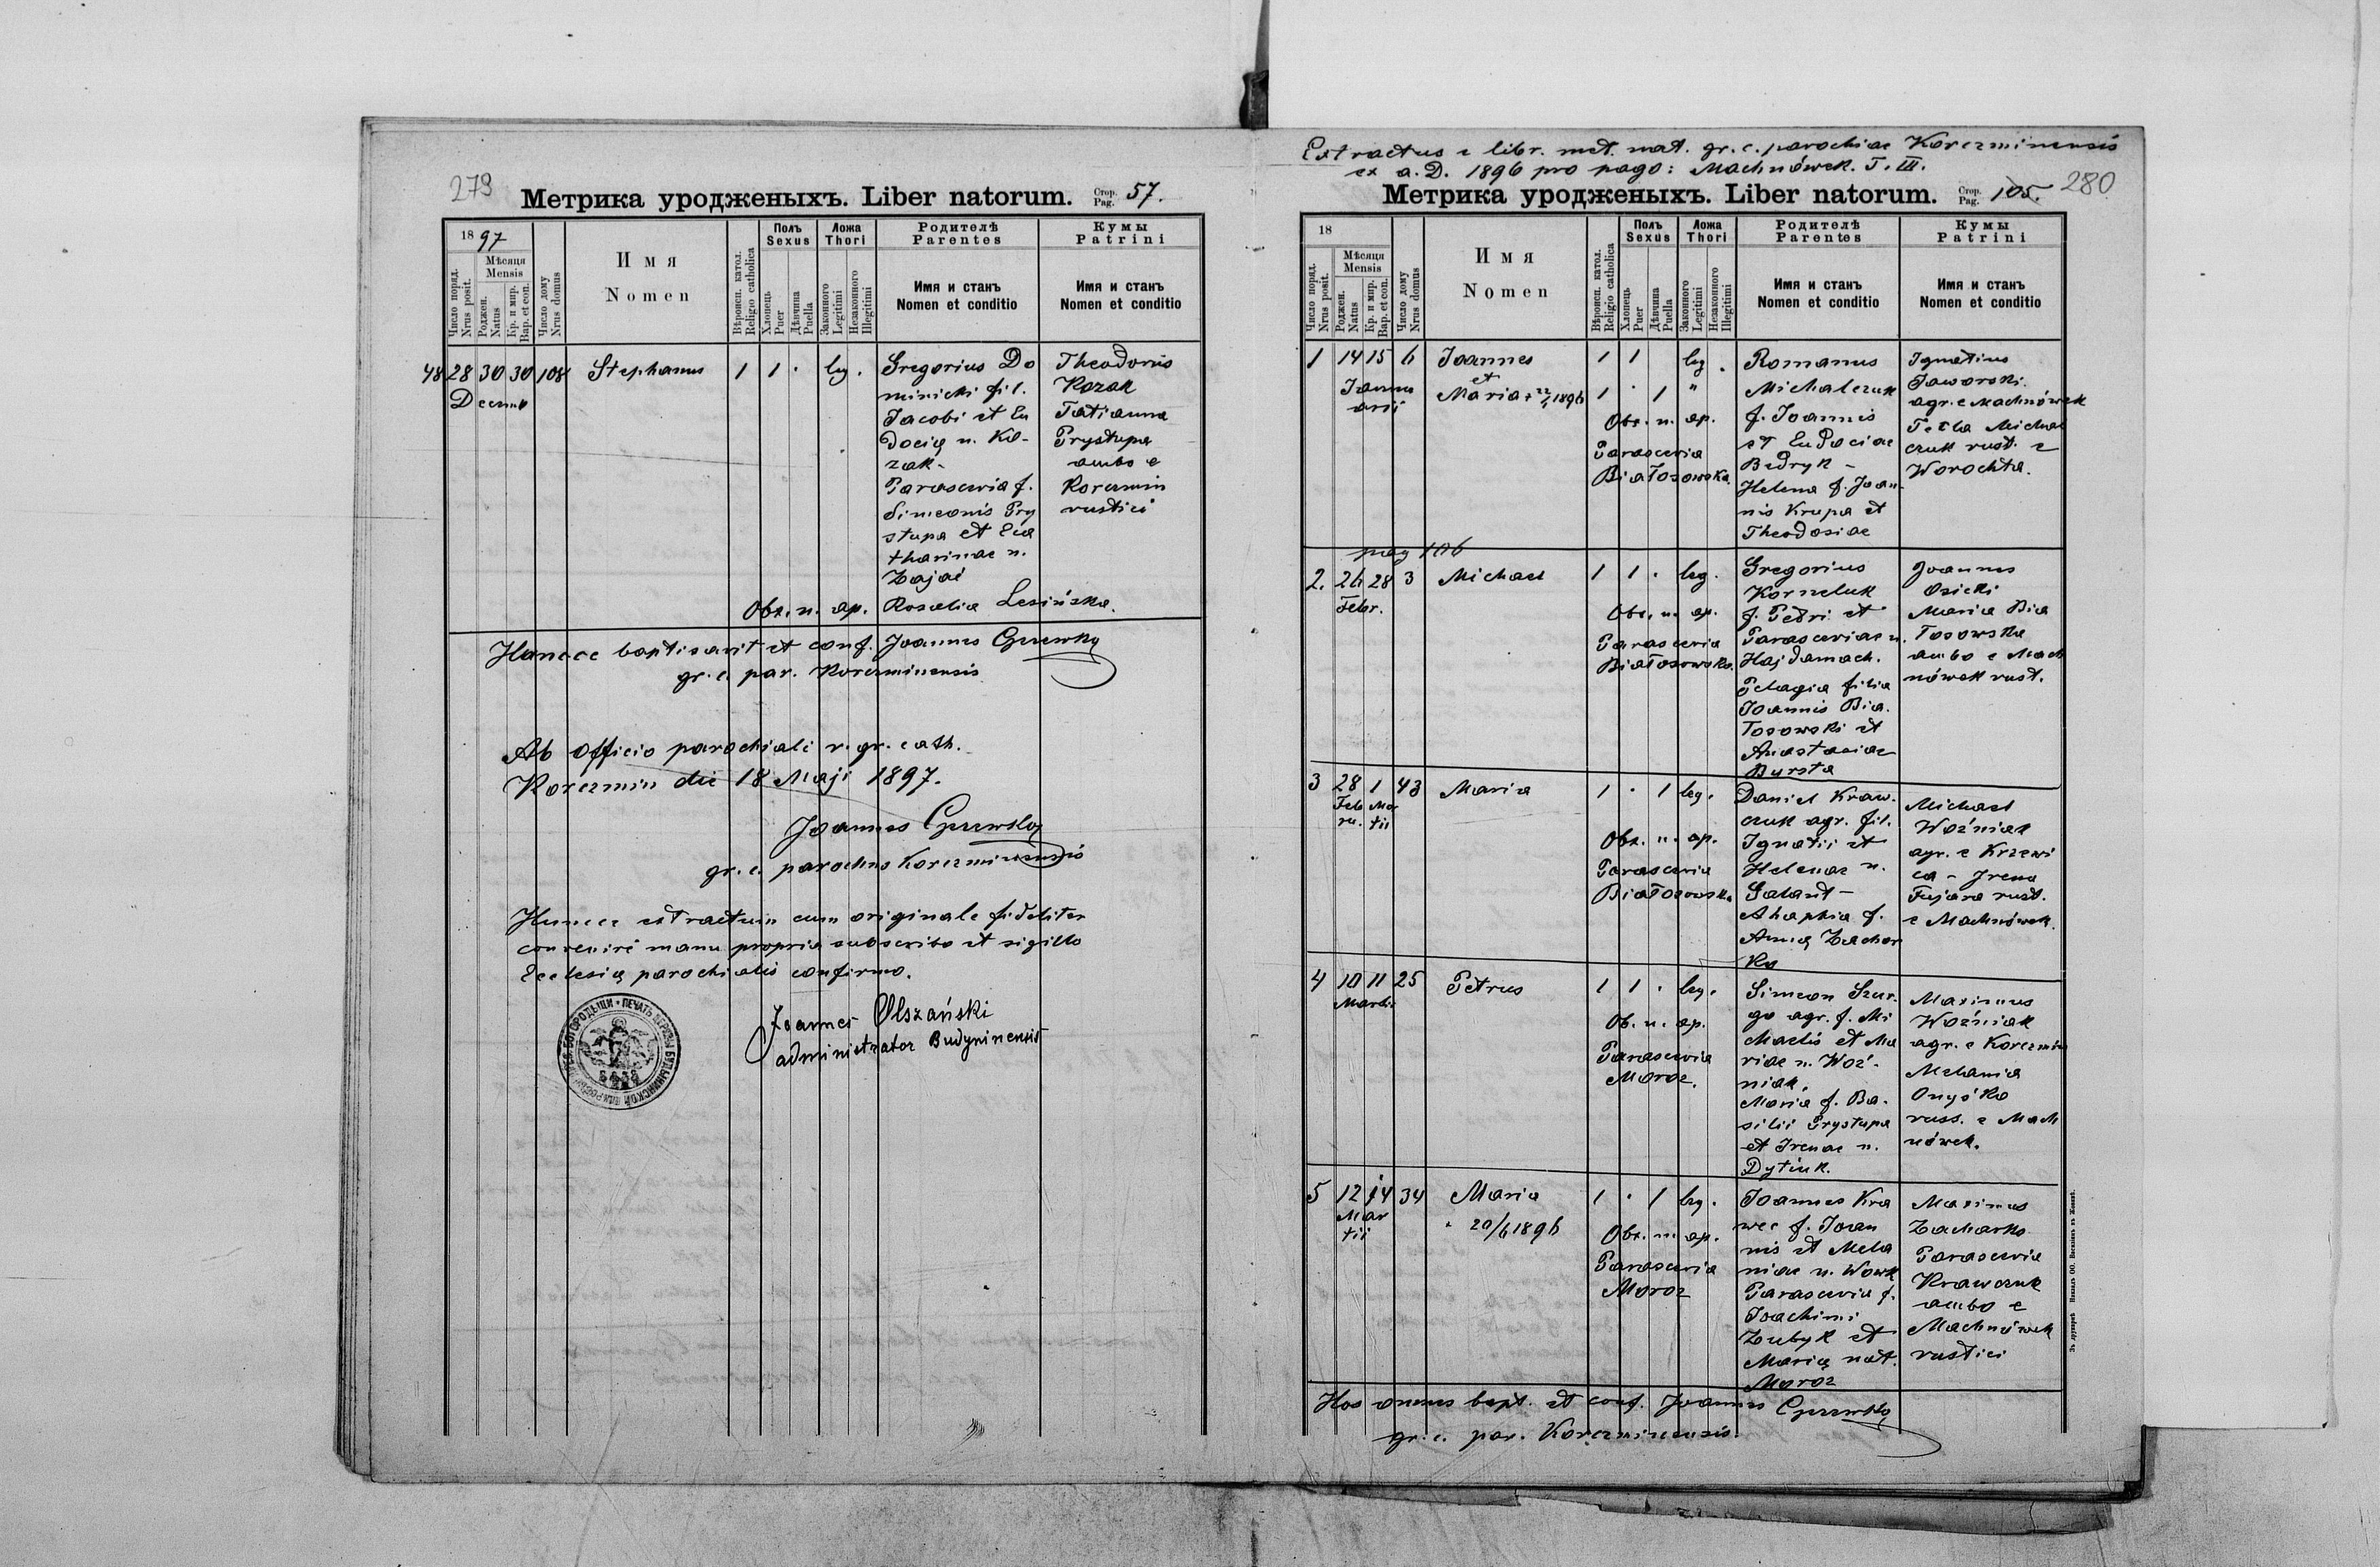 279
Метрика уродженыхъ. Liber natorum. Стор. Pag. 57.
18 97
Число поряд. Nrus posit.
Мѣсяця Mensis
Роджен. Natus
Кр. и мир. Bap. et con.
Число дому Nrus domus
Имя
Nomen
Вѣроисп. катол. Religio catholica
Полъ Sexus
Хлопець Puer
Дѣвчина Puella
Ложа Thori
Законного Legitimi
Незаконного Illegitimi
Родителѣ Parentes
Имя и станъ
Nomen et conditio
Кумы Patrini
Имя и станъ
Nomen et conditio
48 28 30 30 108 Stephanus 1 1 · leg.
Decemb
Gregorius Do
minicki fil.
Jacobi et Eu
docię n. Ko-
zak -
Parascevia f.
Simeonis Pry
stupa et Eca
tharinae n.
Zając
Theodorus
Kozak
Tatianna
Prystupa
ambo e
Korczmin
rustici
Obs. n. ap. Rosalia Lesińska.
Huncce baptisavit et conf. Joannes
gr. c. par. Korczminensis
Ab officio parochiali r. gr. cath.
Korczmin die 18 Maji 1897.
Joannes
gr. c. parochus Korczminensis
Huncce extractum cum originale fideliter
convenire manu propria subscribo et sigillo
Ecclesię parochialis confirmo.
Joannes Olszański
administrator Budyninensis
Extractus e libr. met. nat. gr. c. parochiae Korczminensis
ex a. D. 1896 pro pago: Machnówek. T. III.
Метрика уродженыхъ. Liber natorum. Стор. Pag. 105. 280
18
Число поряд. Nrus posit.
Мѣсяця Mensis
Роджен. Natus
Кр. и мир. Bap. et con.
Число дому Nrus domus
Имя
Nomen
Вѣроисп. катол. Religio catholica
Полъ Sexus
Хлопець Puer
Дѣвчина Puella
Ложа Thori
Законного Legitimi
Незаконного Illegitimi
Родителѣ Parentes
Имя и станъ
Nomen et conditio
Кумы Patrini
Имя и станъ
Nomen et conditio
1 14 15 6 Joannes 1 1 leg.
Janu
arii
et
Maria 1896 1 · 1 "
Obs. n. ap.
Parascevia
Białosowska.
Romanus
Michalczuk
f. Joannis
et Eudociae
Bedryk -
Helena f. Joan-
nis Krupa et
Theodosiae
Ignatius
Jaworski
agr. e Machnówek
Tecla Michal
czuk rust. e
Worochta.
pag 106
2. 26 28 3 Michael 1 1 · leg.
Febr.
Obs. n. ap.
Parascevia
Białosowska.
Gregorius
Korneluk
f. Petri et
Parasceviae n.
Hajdamach.
Pelagia filia
Joannis Bia.
łosowski et
Anastasiae
Bursta
Joannes
Osicki
Maria Bia
łosowska
ambo e Mach
nówek rust.
3 28 1 43 Maria 1 · 1 leg.
Feb
ru.
Mar
tii
Obs. n. ap.
Parascevia
Białosowska
Daniel Kraw.
czuk agr. fil.
Ignatii et
Helenae n.
Galant -
Ahaphia f.
Annę Zachar
ko
Michael
Woźniak
agr. e Krzewi
ca - Irena
Fujara rust.
e Machnówek.
4 10 11 25 Petrus 1 1 · leg.
Martii
Ob. n. ap.
Parascevia
Moroz.
Simeon Szur.
go agr. f. Mi
chaelis et Ma
riae n. Woź.
niak.
Maria f. Ba.
silii Prystupa
et Irenae n.
Dytiuk.
Maximus
Woźniak
agr. e Korczmin
Melania
Onyśko
russ. e Mach
nówek.
5 12 14 34 Maria 1 · 1 leg.
Mar
tii
20/6 1896
Obs. n. ap.
Parascevia
Moroz
Joannes Kra
wec f. Joan
nis et Mela
niae n. Wowk
Parascevia f.
Joachimi
Zubyk et
Marię nat.
Moroz
Maximus
Zacharko
Parascevia
Krawczuk
ambo e
Machnówek
rustici
Hos omnes bapt. et conf. Joannes
gr. c. par. Korczminensis.